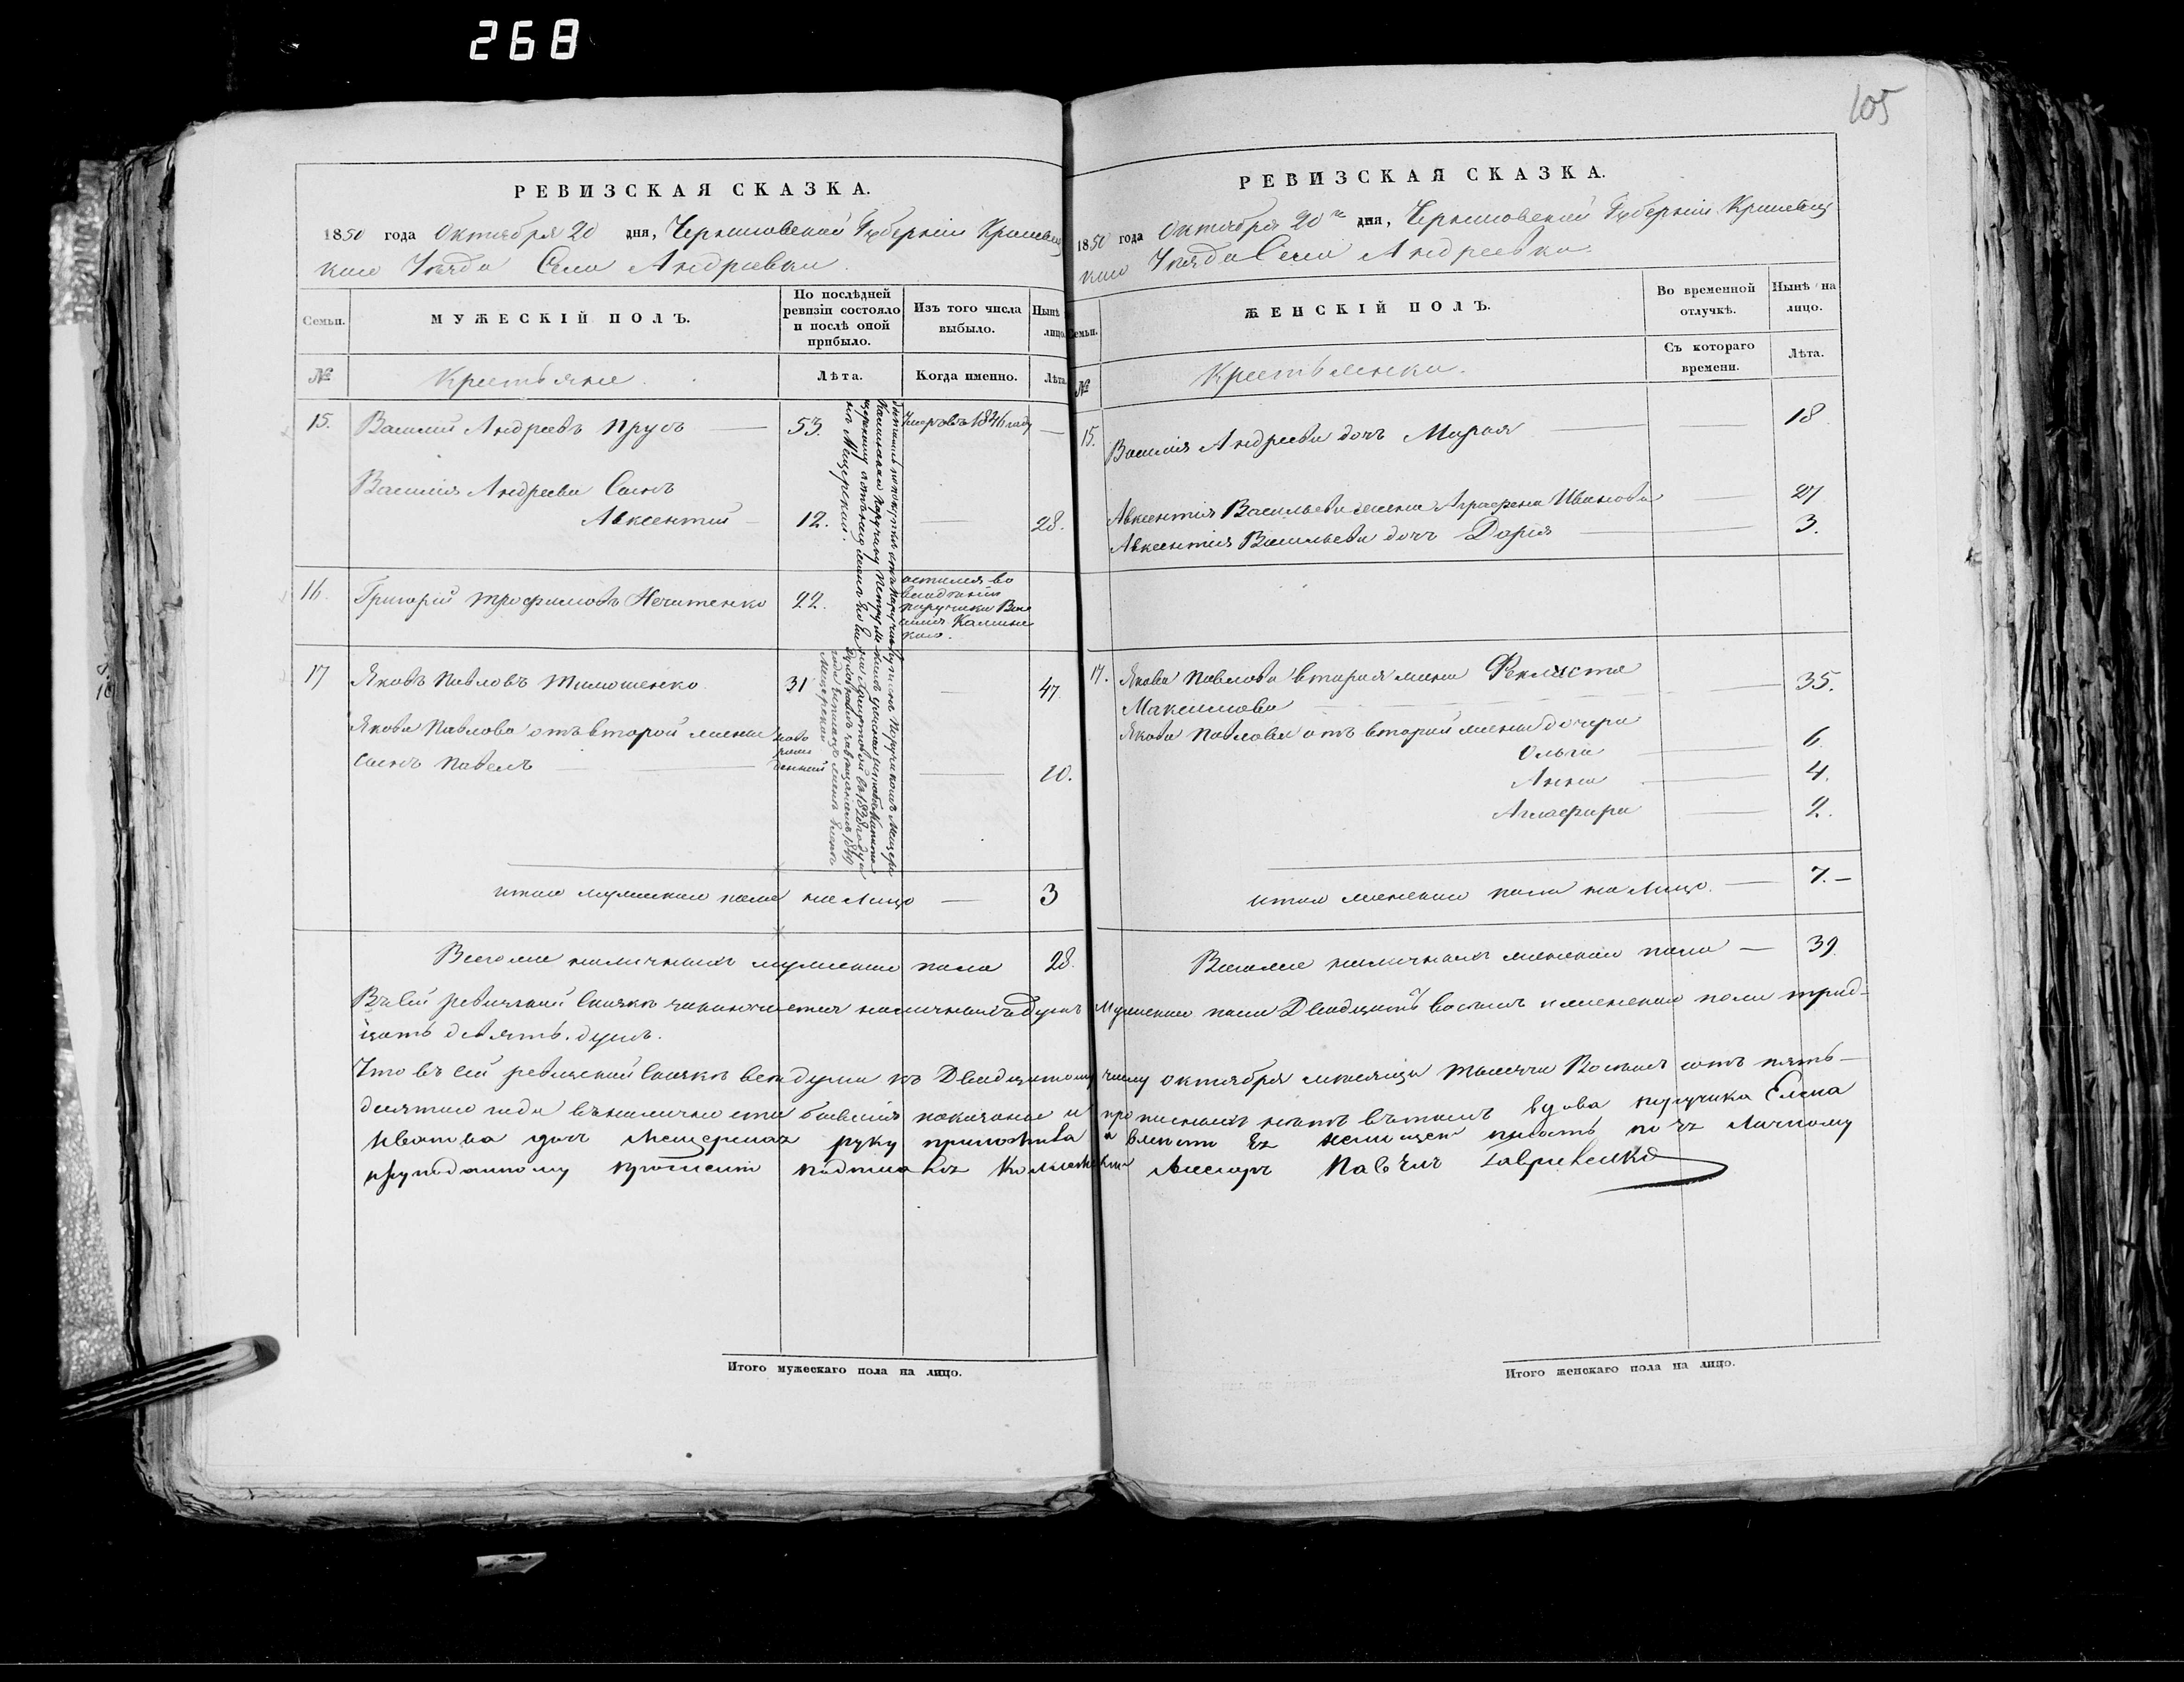 268
105
РЕВИЗСКАЯ СКАЗКА.
1850 года Октября 20 дня, Черниговской Губерніи Кролевец
каго Уѣзда Села Андреевки.
Семьи.
МУЖЕСКІЙ ПОЛЪ.
По послѣдней
ревизіи состояло
и послѣ оной
прибыло.
Изъ того числа
выбыло.
Нынѣ
лицо
№
Крестьяне.
Лѣта.
Когда именно.
Лѣта.
15. Василий Андреевъ Прусъ — 53. Умеръ въ 1846 году —
Василія Андреева Сынъ
Авксентий — 12. — 28.
16. Григорій Трофимовъ Нечитенко 22.
остался во
владѣніи
поручика Вас
илія Калинов
каго.
17 Яковъ Павловъ Тимошенко 31 — 47.
Якова Павлова отъ второй жены
сынъ Павелъ —
ново
рож
денный
— 10.
итого мужеска пола на лицо — 3
Всего же наличныхъ мужеска пола 28.
РЕВИЗСКАЯ СКАЗКА.
1850 года Октября 20 дня, Черниговской Губерніи Кролевец
каго Уѣзда Села Андреевки.
Семьи.
ЖЕНСКІЙ ПОЛЪ.
Во временной
отлучкѣ.
Нынѣ на
лицо.
Съ котораго
времени.
Лѣта.
№
Крестьянки.
15. Василія Андреева дочь Марья — 18
Авксентія Васильева жена Аграфена Иванова — 27
Авксентія Васильева дочь Дарія — 3.
17. Якова Павлова вторая жена Феклиста
Максимова — 35.
Якова Павлова отъ второй жены дочери
Ольга — 6.
Анна — 4.
Аглафира — 2.
итого женска пола на лицо. — 7. —
Всего же наличныхъ женска пола — 39.
Въ сей ревизской сказкѣ заключается наличныхъ душъ мужеска пола Двадцать восемь и женска пола трид-
цать девять. душъ.
Что въ сей ревизской сказкѣ все души къ Двадцатому числу октября мѣсяца тысяча Восемь сотъ пять-
десятаго года въ наличности бывшія показаны и прописныхъ нѣтъ въ томъ вдова поручика Елена
Иванова дочь Мещерская руку приложила а вмѣсто ея писать по ея личному
прошенію подписалъ Колежскій Павелъ Гавриленко
Итого мужескаго пола на лицо.
Итого женскаго пола на лицо.